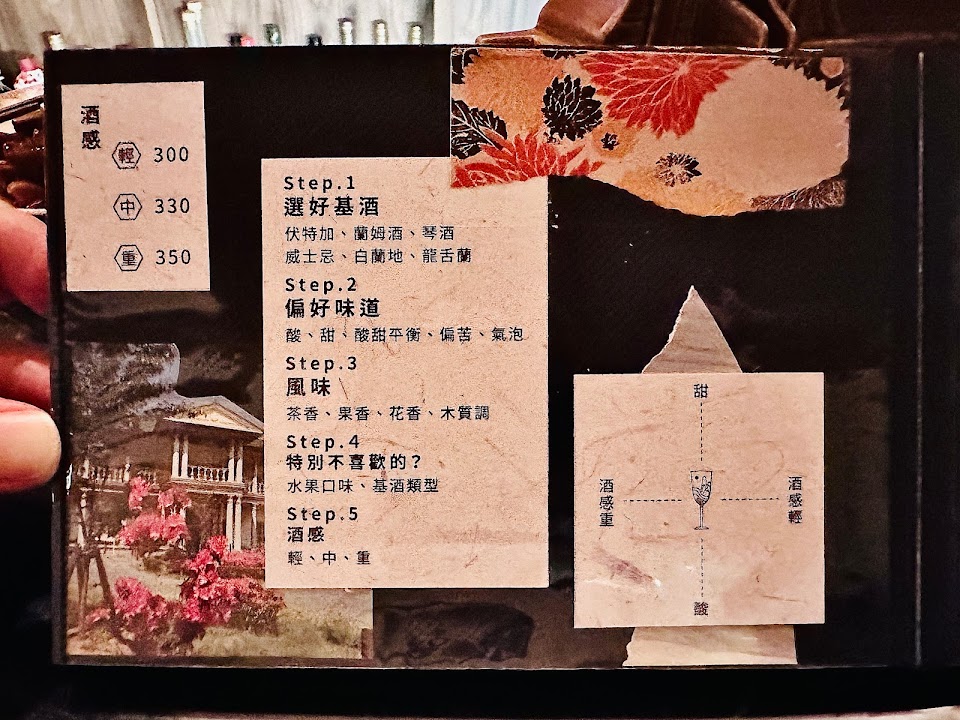 酒感
輕 300
中 330
重 350
Step.1
選好基酒
伏特加、蘭姆酒、琴酒
威士忌、白蘭地、龍舌蘭
Step.2
偏好味道
酸、甜、酸甜平衡、偏苦、氣泡
Step.3
風味
茶香、果香、花香、木質調
Step.4
特別不喜歡的?
水果口味、基酒類型
Step.5
酒感
輕、中、重
甜
酒感重
酒感輕
酸